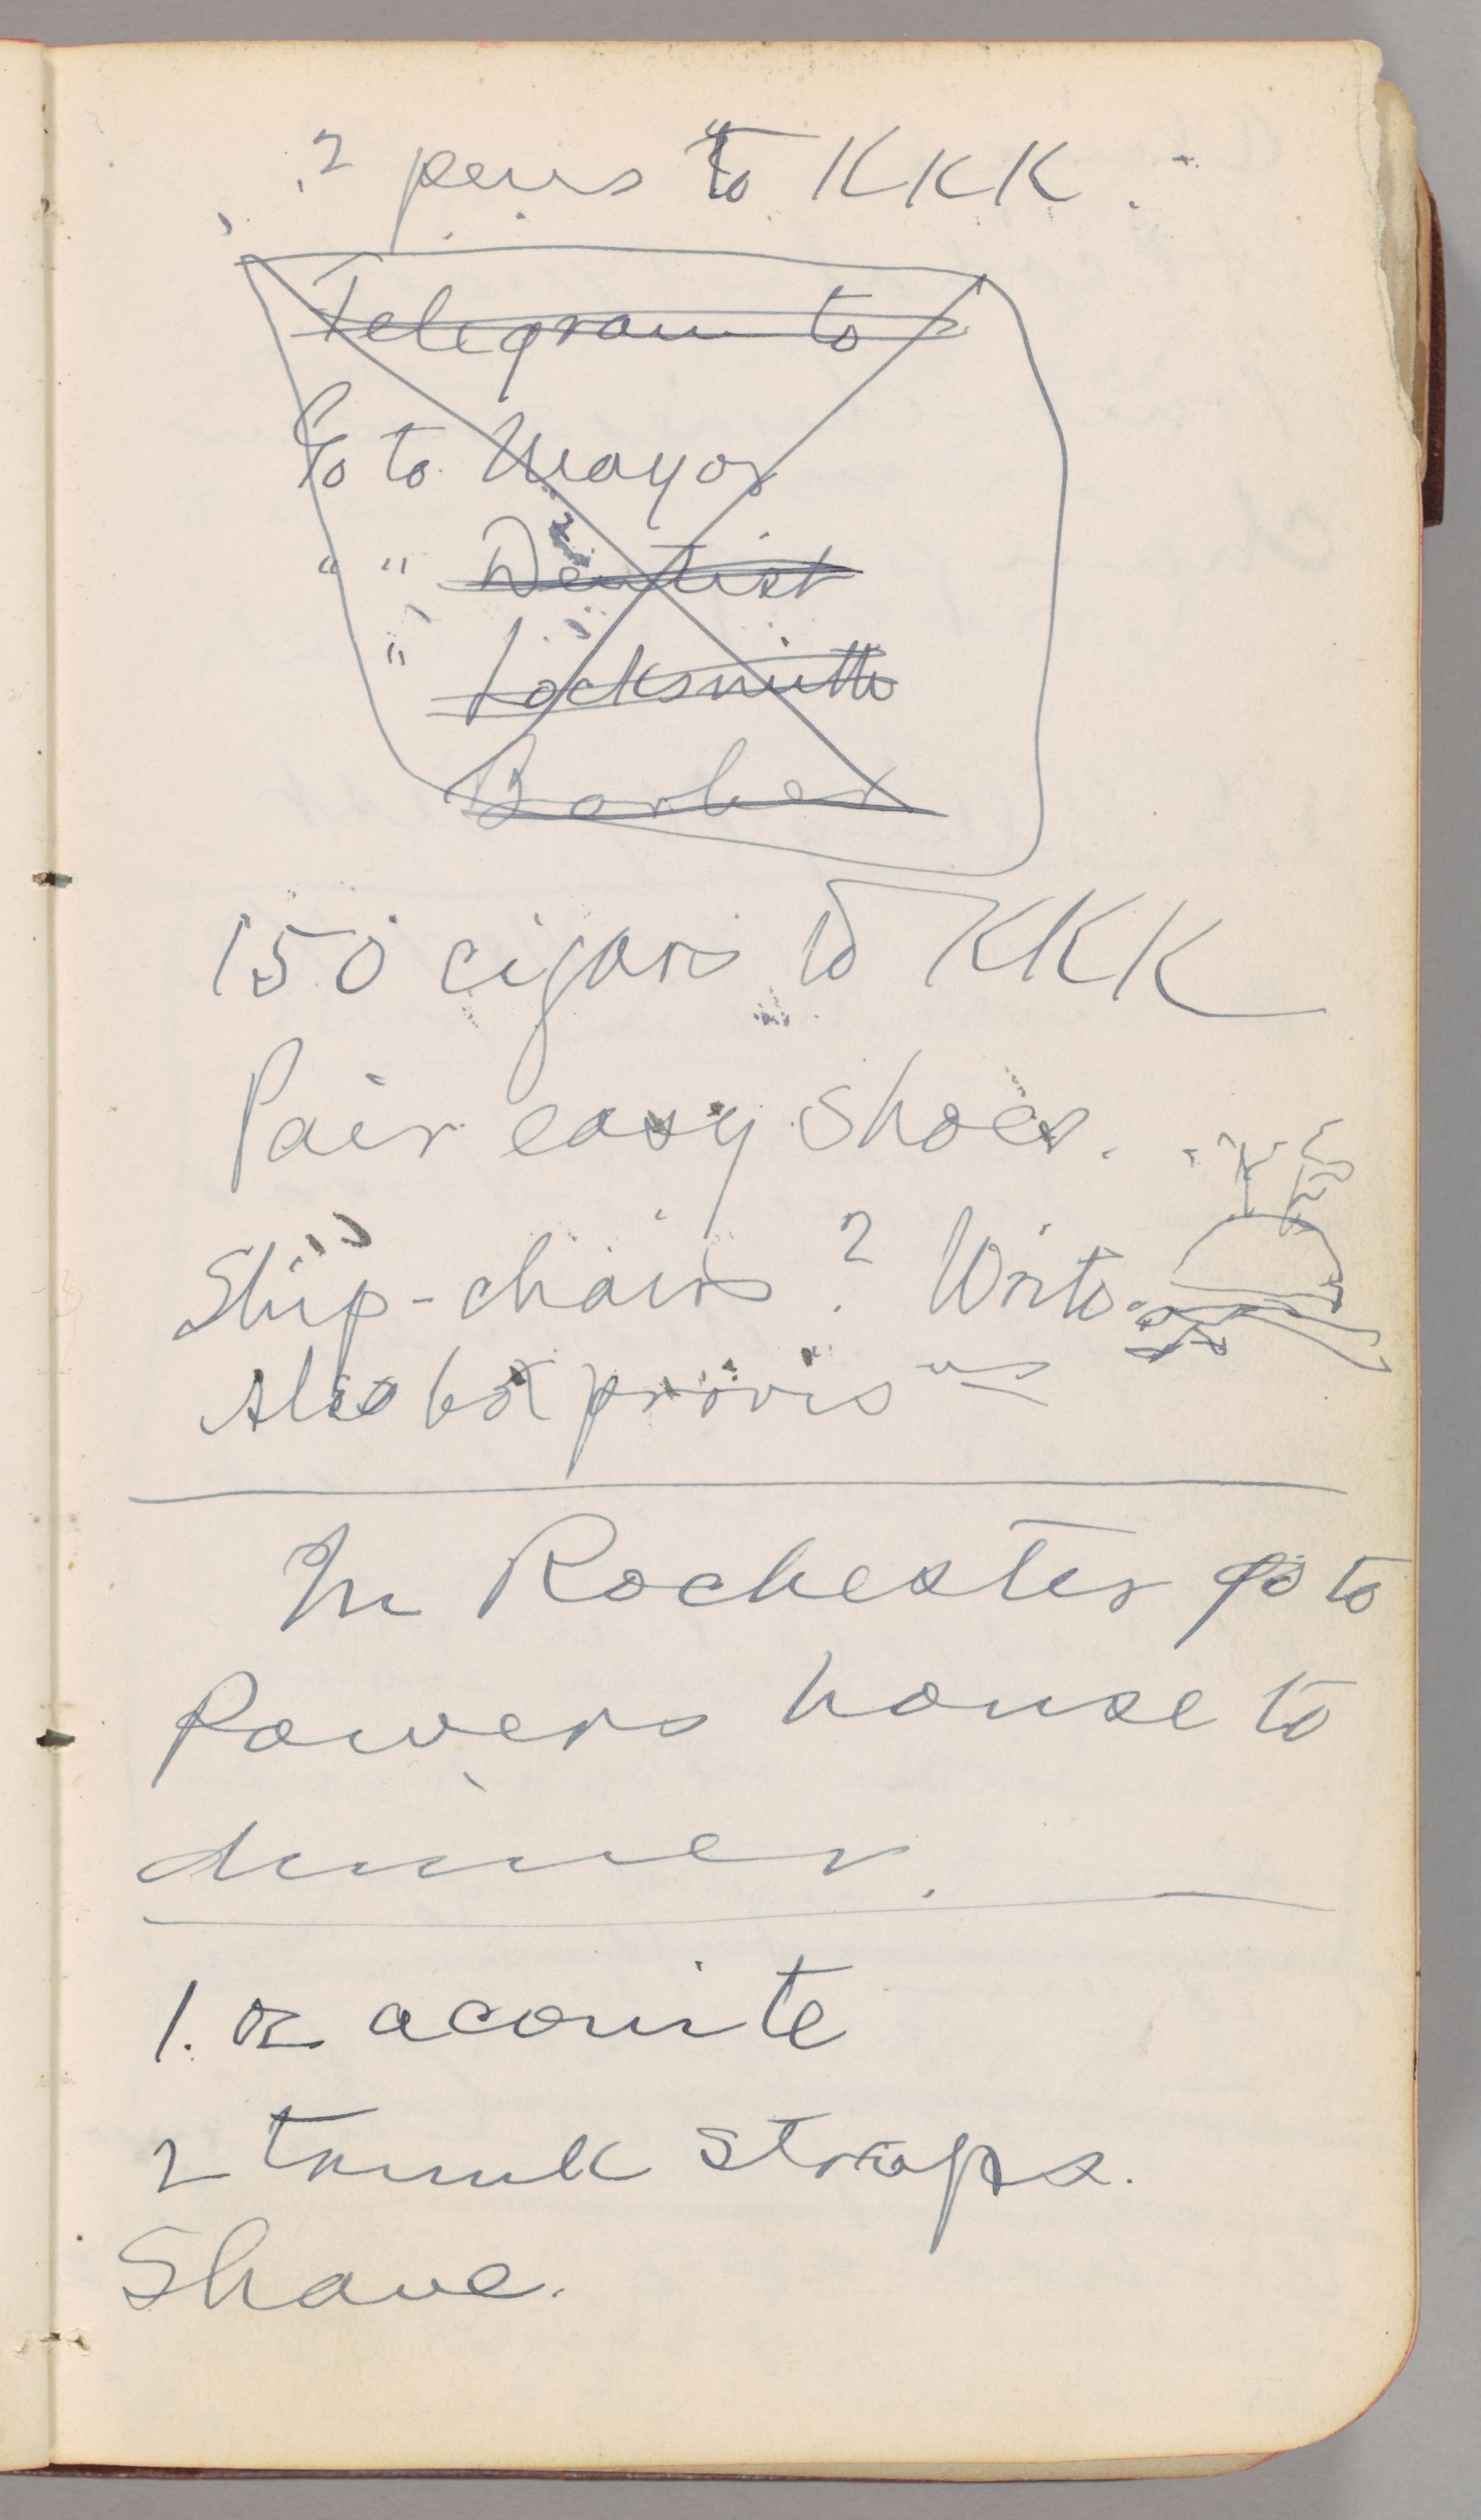 2 pens to KKK.
Telegram to
Go to Mayor
" " Dentist
" Locksmith
Barber
150 cigars to KKK
Pair easy shoes.
Ship-chairs? Write
Also box provisns
In Rochester go to
Powers house to
dinner.
1. oz aconite
2 trunk straps.
Shave.